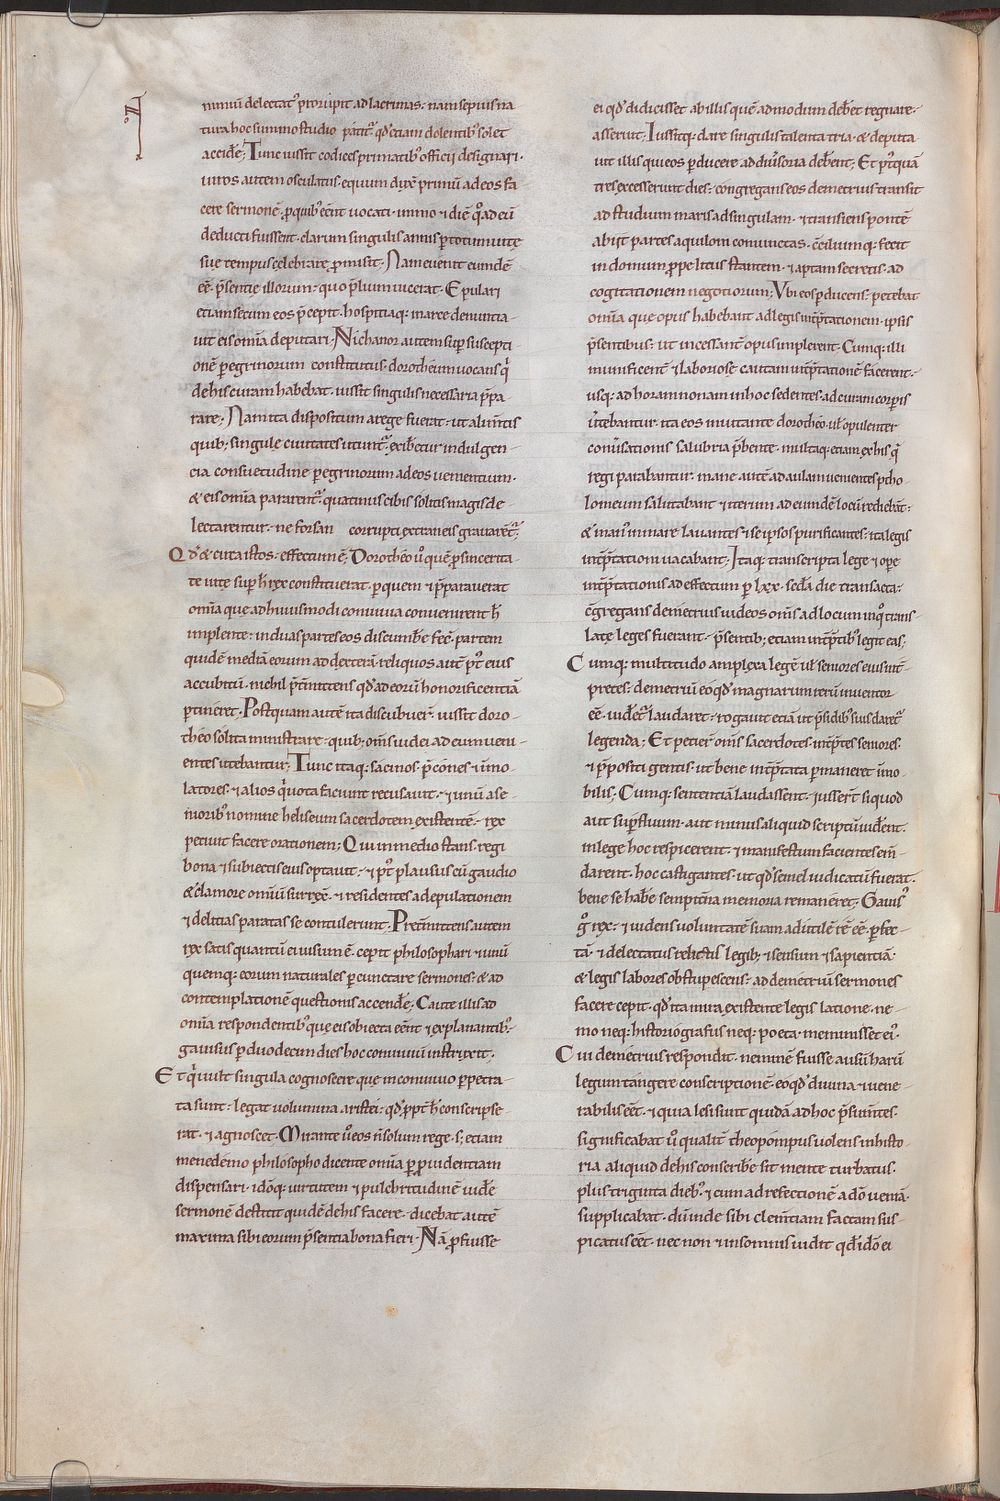 nimiū delectatꝰ prorupit ad lacrimas · nam sepius na-
tura hoc summo studio patit᷑ qđ etiam dolentibꝰ solet
accidē; Tunc iussit codices primatibꝰ officii designari ·
uiros autem osculatus · equum dux̄ primū ad eos fa-
cere sermonē ꝓ quibꝰ eēnt uocati · immo ⁊ diē qͦ ad eū
deducti fuissent · clarum singulis annis ꝑ totum uitę
suę tempus celebrare ꝓmisit · Nam euenit eundē
eē p̄sentię illorum · quo p̄lium uicerat · Epulari
etiam secum eos p̄cepit · hospitiaq; iuxta arcē denuntia-
uit eis om̄ia deputari · Nichanor autem sup suscepti-
onē ꝑegrinorum constitutus · dorotheum uocans qͥ
de his curam habebat · iussit singulis necessaria p̄pa-
rare · Nam ita dispositum a rege fuerat · ut alim̄tis
quibꝫ singulę ciuitates utunt᷑ · exib̄et᷑ indulgen-
cia consuetudine ꝑegrinorum ad eos uenientium ·
& eis om̄ia pararent᷑ · quatinus cibis solitis magis de-
lectarentur · ne forsan corrupti extraneis grauarēt᷑;
Qđ & circa istos · effectum ē; Dorotheo ũ quē ꝓ sincerita-
te uitę sup h̄ rex constituerat · ꝑ quem ⁊ p̄parauerat
om̄ia que ad huiusmodi conuiuia conuenirent h̄
implente · in duas partes eos discumb̄e fec̄ · partem
quidē mediā eorum ad dexterā · reliquos aut̄ p᷑t eius
accubitū · nichil p̄t̄mittens qđ ad eorū honorificentiā
ꝑtineret · Postquam autē ita discubuer̄ · iussit doro-
theo solita ministrare · quibꝫ om̄s iudei ad eum ueni-
entes utebantur; Tunc itaq; sac̄inos · p̄cones · ⁊ im̄o-
latores · ⁊ alios qͥ uota faciunt recusauit · ⁊ unū a se-
nioribꝰ nomine heliseum sacerdotem existentē · rex
petiuit facere orationem; Qui in medio stans · regi
bona ⁊ subiectis eius optauit · ⁊ p᷑t plausus cū gaudio
& clamore omniū surrex̄ · ⁊ residentes ad epulationem
⁊ delitias paratas se contulerunt; Preīmittens autem
rex satis quantū ei uisum ē · cepit philosophari · ⁊ unū
quemq; eorum naturales ꝑcunctare sermones · & ad
contemplationē questionis accendē; Caute illis ad
om̄ia respondentibꝰ que eis obiecta eēnt ⁊ explanantibꝰ ·
gauisus ꝑ duodecim dies hoc conuiuiū instruxit ·
Et qͥ uult singula cognoscere que in conuiuio ꝑpetra-
ta sunt · legat uolumina aristei · qđ ꝓpt̄ h̄ conscripse-
rat · ⁊ agnoscet · Mirante ũ eos n̄ solum rege · sꝫ etiam
menedemo philosopho dicente om̄ia ꝑ ꝓuidentiam
dispensari · idōq; uirtutem ⁊ pulchritudinē uidē
sermonē destitit quidē de his facere · dicebat autē
maxima sibi eorum p̄sentia bona fieri · Nā ꝓfuisse
ei qđ didicisset ab illis quē admodum deb̄et regnare ·
asseruit; Iussitq; dare singulis talenta tria · & deputa-
uit illis qui eos ꝑducere ad diũsoria deb̄ent; Et p᷑tquā
tres excesserunt dies · congregans eos demetrius transit
ad studium maris ad singulam · ⁊ transiens pontē
abiit partes aquilom coniunctas · cc̄iliumq; fecit
in domum ꝓpe litus stantem · ⁊ aptam secretis · ad
cogitationem negotiorum; Vbi eos ꝑducens · petebat
om̄ia que opus habebant ad legis int̄p̄tationem · ipsis
p̄sentibus · ut incessant̄ opus implerent · Cumq; illi
munificent̄ ⁊ laboriose cautam int̄p̄tationē facerent ·
usq; ad horam nonam in hoc sedentes · ad curam corꝑis
ũtebantur · ita eos inuitante dorotheo · ut̄ opulenter
conũsationis salubria p̄bente · multaq; etiam ex his qͥ
regi parabantur · mane autē ad aulam uenientes ptho-
lomeum salutabant ⁊ iterum ad eundē locū rediebāt ·
& manꝰ in mare lauantes ⁊ se ipsos purificantes · ita legis
int̄p̄tationi uacabant; Itaq; transcripta lege ⁊ ope
int̄p̄tationis ad effectum ꝑ lxx · seda die transacta ·
c̄gregans demetrius iudeos om̄s ad locum in qͦ trans-
latę leges fuerant · p̄sentibꝫ etiam int̄p̄tibꝰ legit eas;
Cumq; multitudo amplexa legē · ut̄ seniores eius int̄-
pretes · demetriū eo qđ magnarum rerū inuentor
eē uidet᷑ laudaret · rogauit etiā ut p̄sidibꝰ suis daret᷑
legenda; Et petier̄ om̄s sacerdotes · int̄p̄tes seniores ·
⁊ p̄positi gentis · ut bene int̄p̄tata ꝑmaneret im̄o-
bilis; Cumq; sententiā laudassent · ⁊ iusser̄t si quod
aut supfluum · aut minus aliquid scriptū uiderent ·
in lege hoc respicerent · ⁊ manifestum facientes em̄-
darent · hoc castigantes · ut qđ semel iudicatū fuerat ·
bene se hab̄e sempit̄na memoria remaneret; Gauisꝰ
gͦ rex · ⁊ uidens uoluntatē suam ad utilē rē eē ꝑfec-
tā · ⁊ delectatus relictis legibꝫ · ⁊ sensum ⁊ sapientiā
& legis labores obstupescens · ad demetriū sermones
facere cepit · qđ ita mira existente legis latione · ne-
mo neq; historiografus neq; poeta · meminisset ei ·
Cui demetrius respondit · neminē fuisse ausū harū
legum tangere conscriptionē · eo qđ diuina ⁊ uene-
rabilis eēt · ⁊ quia lesi sunt quidā ad hoc p̄sum̄tes ·
significabat ũ qualit̄ theopompus uolens in histo-
ria aliquid de his conscrib̄e · sit mente turbatus ·
plus triginta diebꝰ · ⁊ cum ad refectionē a dō ueniā
supplicabat · deinde sibi clementiam factam sus-
picatus eēt · nec non ⁊ in somniis uidit qđ idō ei